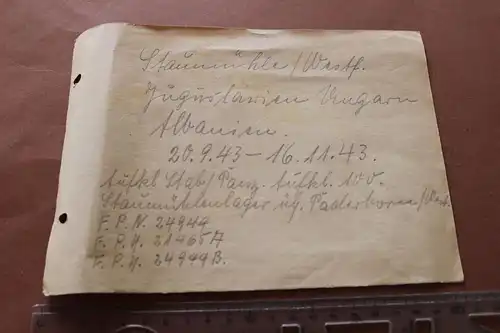 Staumühle/Westf.
Juguslavien Ungarn
Albanien.
20.9.43 – 16.11.43.
Aufkl Stab/Panz. Aufkl. 100.
Staumühlenlager üb. Paderborn/West.
F.P.N. 24944
F.P.N. 21465A
F.P.N. 24944B.